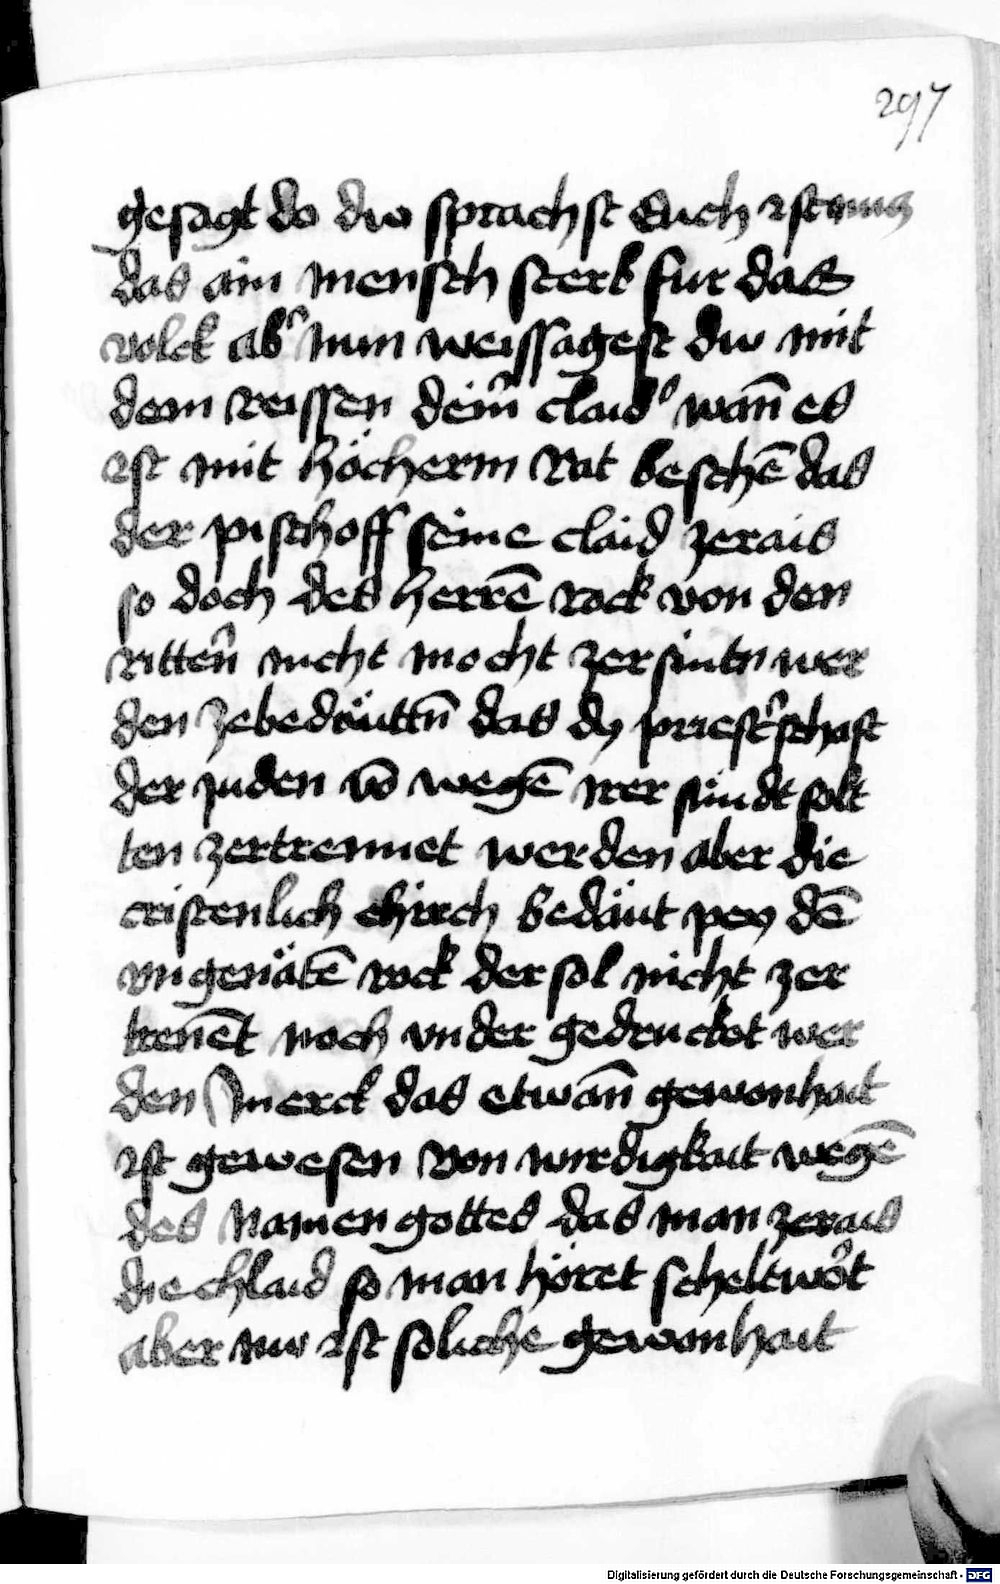 297
gesagt do diw sprachst Euch ist nucz
das ain mensch sterb fur das
volck abˀ nun weissagest diw mit
dem reissen deinˀ claidˀ wan̄ es
ist mit höcherm Rat beschehē das
der pischoff seine claid zerais
so doch des herrē rock von den
rittern̄ nicht mocht zersnitn wer
den zebedäuttn̄ das dy priestˀschaft
der juden vō wegē irer sündt solt
ten zertrennet werden aber die
cristenlich chirch bedäut pey dē
vngenätē rock der sol nicht zer
trenēt noch vnder gedruckot wer
den Merck das etwan̄ gewonhait
ist gewesen von wirdigkait wegē
des Namen gottes das man zerais
die chlaid so man höret scheltwoˀt
aber nw ist soliche gewonhait
Digitalisierung gefördert durch die Deutsche Forschungsgemeinschaft - DFG